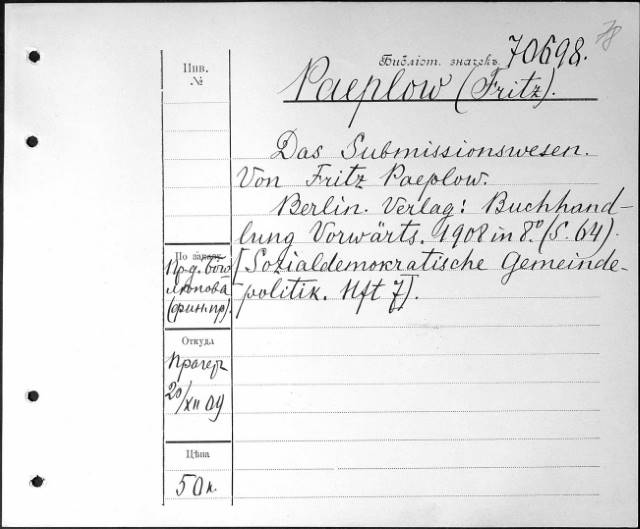 78
Библіот. значекъ 70698.
Инв.
№
Paeplow (Fritz).
Das Submissionswesen.
Von Fritz Paeplow.
Berlin. Verlag: Buchhand-
lung Vorwärts. 1908 in 8.° (S. 64).
[Sozialdemokratische Gemeinde-
politik. Hft 7].
По заказу
Пр-д.
(фин. пр).
Откуда
Прагеръ
20/XII 09
Цѣна
50 к.